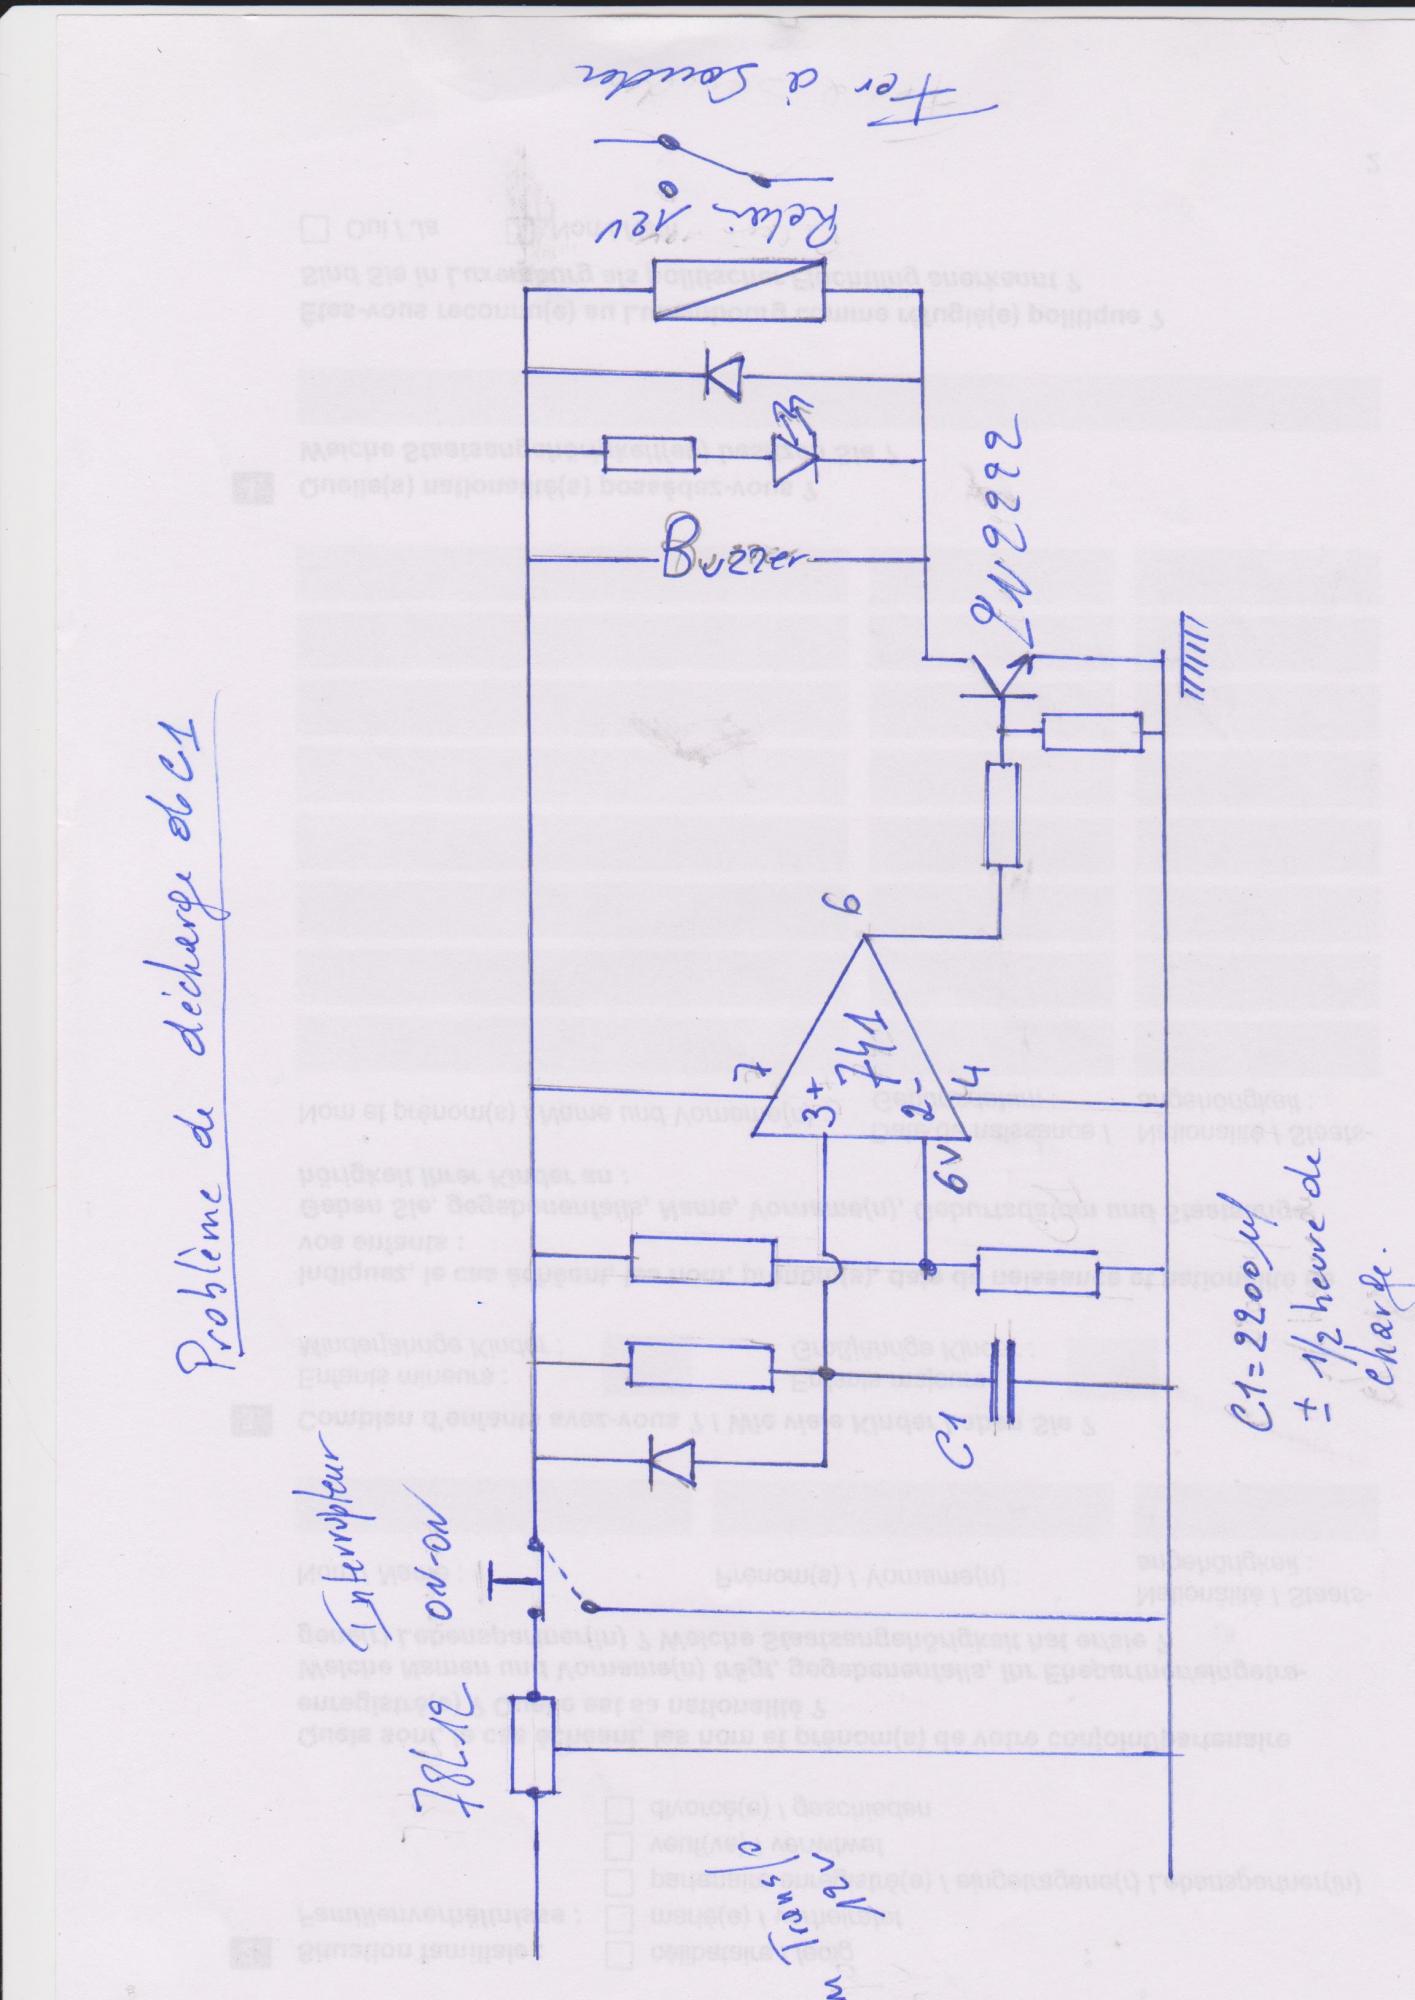 Problème de décharge de C1
Interrupteur
ON-ON
78L12
Transfo
12V
C1
C1=2200µf
± 1/2 heure de
charge.
7
3+
741
2-
4
6V
6
2N2222
Buzzer
Relais 12V
Fer à Souder
Quels sont, le cas échéant, les nom et prénom(s) de votre conjoint/partenaire
enregistré(e) ? Quelle est sa nationalité ?
Welche Namen und Vorname(n) trägt, gegebenenfalls, Ihr Ehepartner/eingetra-
gene(r) Lebenspartner(in) ? Welche Staatsangehörigkeit hat er/sie ?
Nom / Name :
Prénom(s) / Vorname(n) :
Nationalité / Staats-
angehörigkeit :
Situation familiale :
Familienverhältnisse :
célibataire / ledig
marié(e) / verheiratet
partenaire enregistré(e) / eingetragene(r) Lebenspartner(in)
veuf(ve) / verwitwet
divorcé(e) / geschieden
Combien d'enfants avez-vous ? / Wie viele Kinder haben Sie ?
Enfants mineurs :
Minderjährige Kinder :
Enfants majeurs
Großjährige Kinder :
Indiquez, le cas échéant, les nom, prénom(s), date de naissance et nationalité de
vos enfants :
Geben Sie, gegebenenfalls, Name, Vorname(n), Geburtsdatum und Staatsange-
hörigkeit Ihrer Kinder an :
Nom et prénom(s) / Name und Vorname(n) :
Date de naissance /
Geburtsdatum :
Nationalité / Staats-
angehörigkeit :
Quelle(s) nationalité(s) possédez-vous ?
Welche Staatsangehörigkeit(en) besitzen Sie ?
Êtes-vous reconnu(e) au Luxembourg comme réfugié(e) politique ?
Sind Sie in Luxemburg als politischer Flüchtling anerkannt ?
Oui / Ja
Non
2